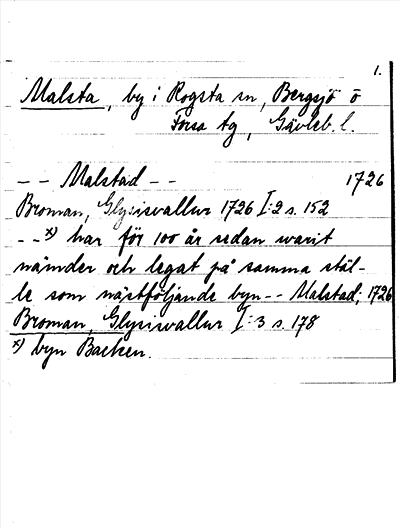 1.
Malsta, by i Rogsta sn, Bergsjö o
Forsa tg, Gävleb. l.
-- Malstad -- 1726
Broman, Glysisvallur 1726 I:2 s. 152
--x) har för 100 år sedan warit
nämder och legat på samma stäl-
le som nästföljande byn-- Malstad; 1726
Broman, Glysisvallur I:3 s. 178
x) byn Backen.